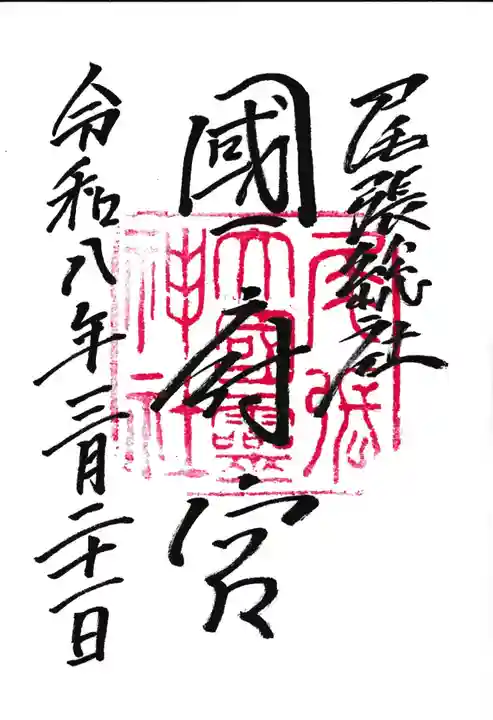 尾張総社
國府宮
令和八年三月二十一日
尾張
大國霊
神社